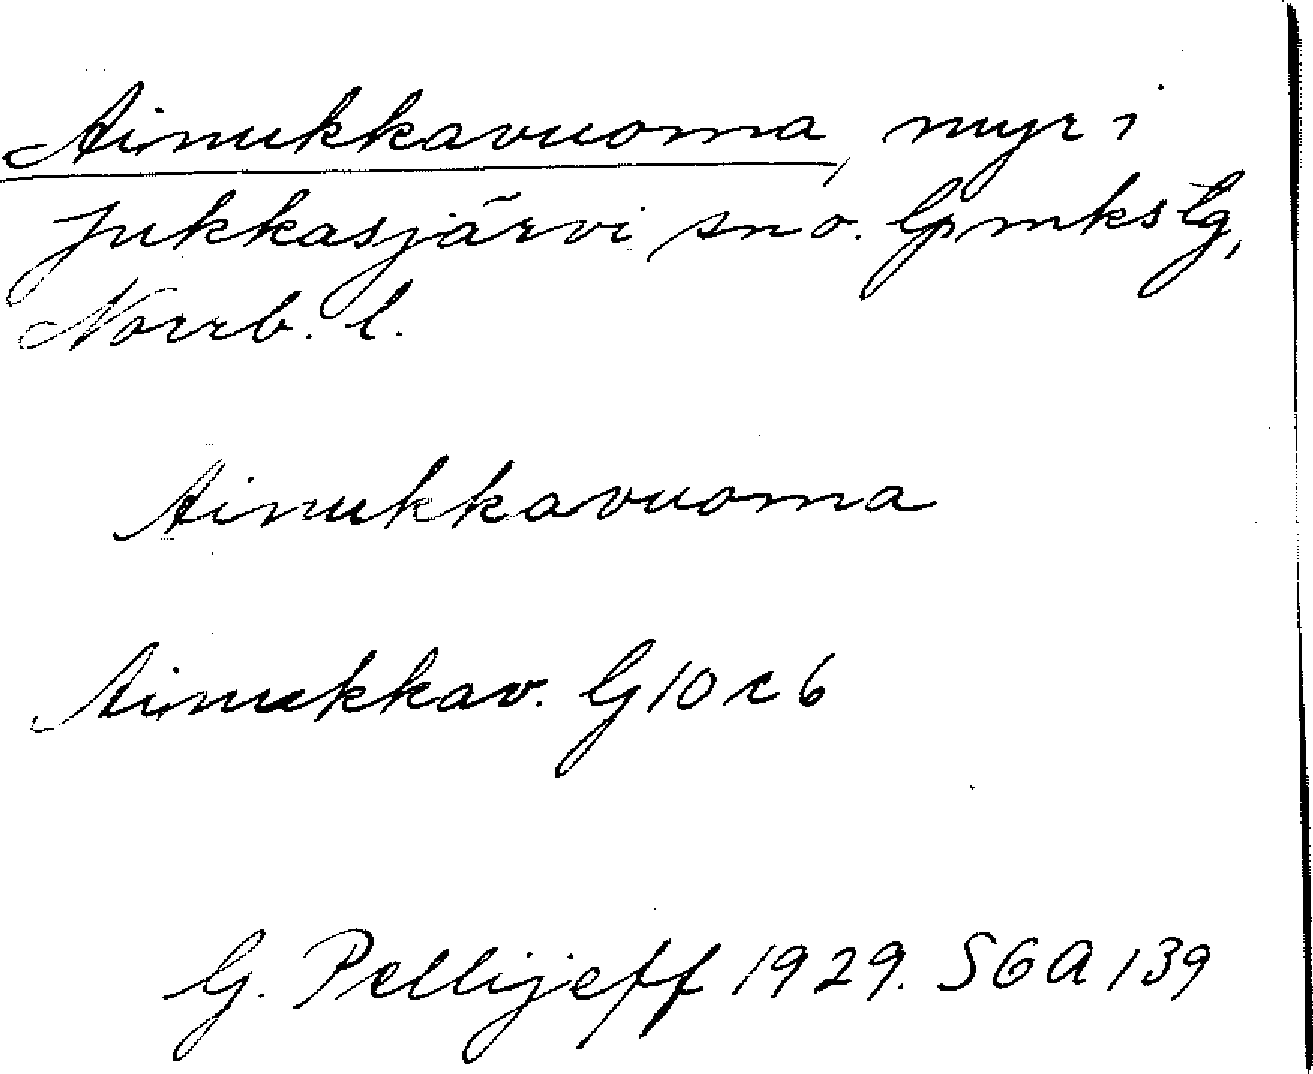 Ainukkavuoma, myr i
Jukkasjärvi sno. Gpmkslg,
Norrb. l.
Ainukkavuoma
Ainukkav. G 10 c 6
G. Pellijeff 1929. SGA 139